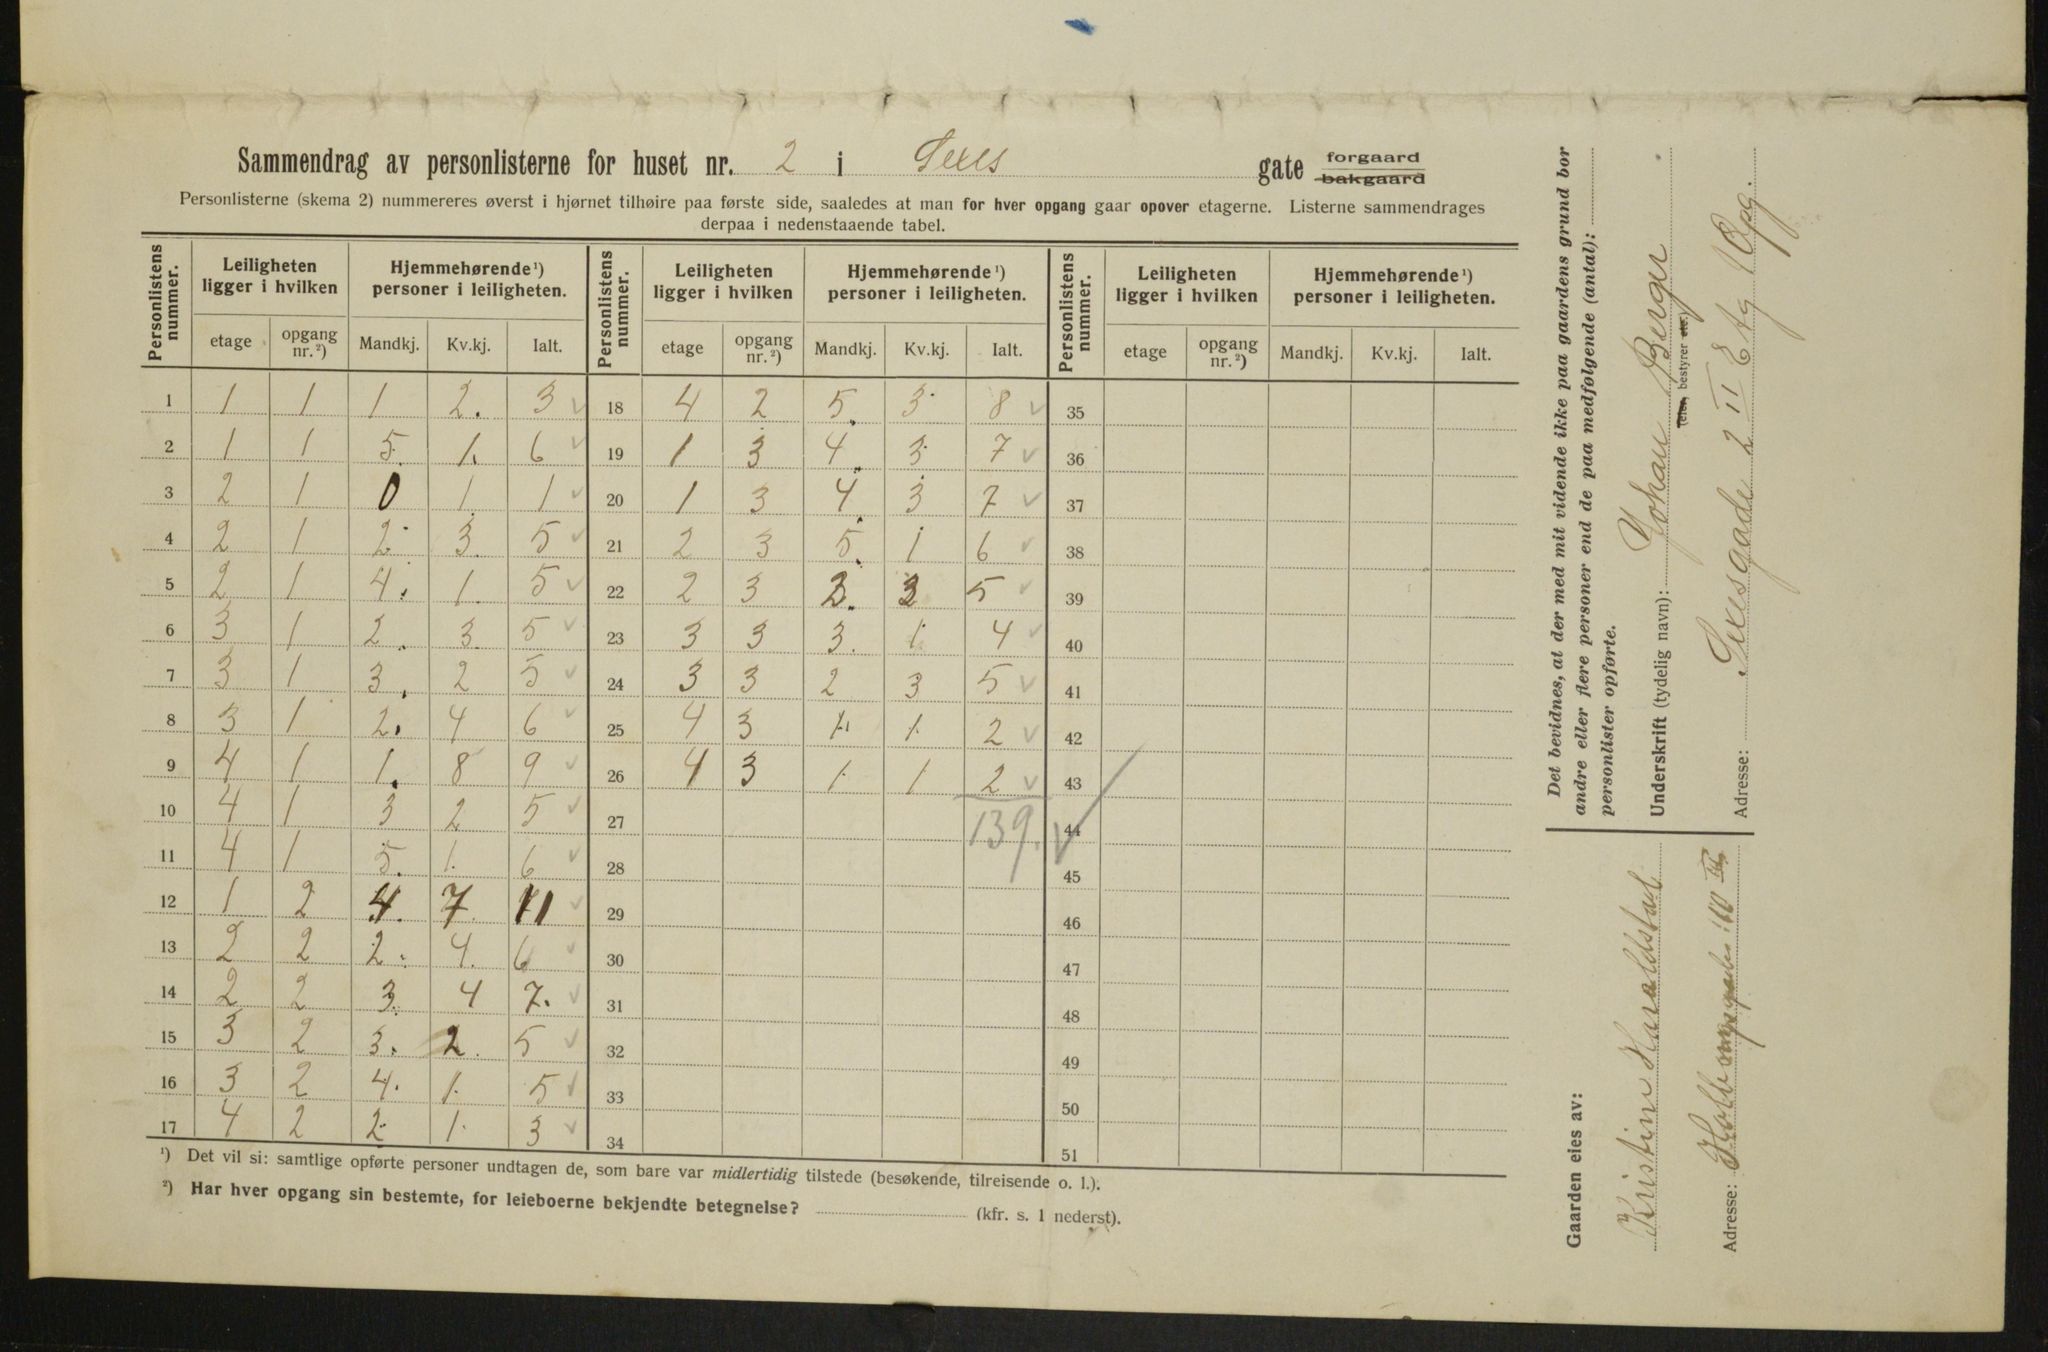 Sammendrag av personlisterne for huset nr. 2 i Sexes gate forgaard bakgaard
Personlisterne (skema 2) nummereres øverst i hjørnet tilhøire paa første side, saaledes at man for hver opgang gaar opover etagerne. Listerne sammendrages
derpaa i nedenstaaende tabel.
Personlistens nummer. Leiligheten ligger i hvilken Hjemmehørende ¹) personer i leiligheten. Personlistens nummer. Leiligheten ligger i hvilken Hjemmehørende ¹) personer i leiligheten. Personlistens nummer. Leiligheten ligger i hvilken Hjemmehørende ¹) personer i leiligheten.
etage opgang nr. ²) Mandkj. Kv.kj. Ialt. etage opgang nr. ²) Mandkj. Kv.kj. Ialt. etage opgang nr. ²) Mandkj. Kv.kj. Ialt.
1 1 1 1 2. 3 18 4 2 5. 3 8 35
2 1 1 5. 1. 6 19 1 3 4. 3 7 36
3 2 1 0 1 1 20 1 3 4. 3 7 37
4 2 1 2 3. 5 21 2 3 5. 1 6 38
5 2 1 4. 1. 5 22 2 3 2. 3 5 39
6 3 1 2. 3 5 23 3 3 3. 1 4 40
7 3 1 3. 2 5 24 3 3 2 3 5 41
8 3 1 2. 4 6 25 4 3 1. 1. 2 42
9 4 1 1. 8 9 26 4 3 1 1 2 43
10 4 1 3 2 5 27 139. 44
11 4 1 5. 1. 6 28 45
12 1 2 4. 7. 11 29 46
13 2 2 2. 4. 6 30 47
14 2 2 3. 4 7. 31 48
15 3 2 3. 2. 5 32 49
16 3 2 4. 1. 5 33 50
17 4 2 2 1. 3 34 51
¹) Det vil si: samtlige opførte personer undtagen de, som bare var midlertidig tilstede (besøkende, tilreisende o. l.).
²) Har hver opgang sin bestemte, for leieboerne bekjendte betegnelse? (kfr. s. 1 nederst).
Det bevidnes, at der med mit vidende ikke paa gaardens grund bor
andre eller flere personer end de paa medfølgende (antal):
personlister opførte.
Underskrift (tydelig navn): Johan Berger
(eier, bestyrer etc.)
Adresse: Sexesgade 2 II Etg 1 Opg.
Gaarden eies av:
Kristine Haraldstad
Adresse: